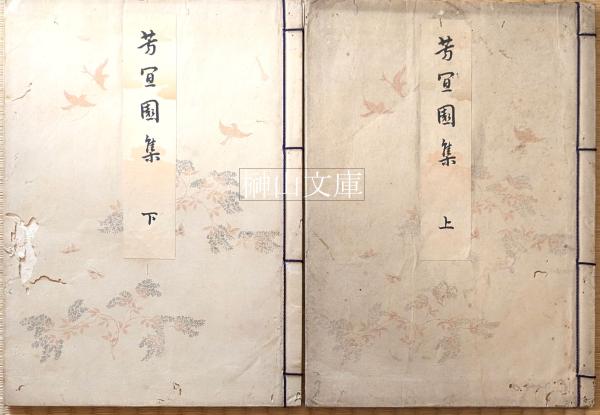 芳宜園集
上
芳宜園集
下
榊山文庫